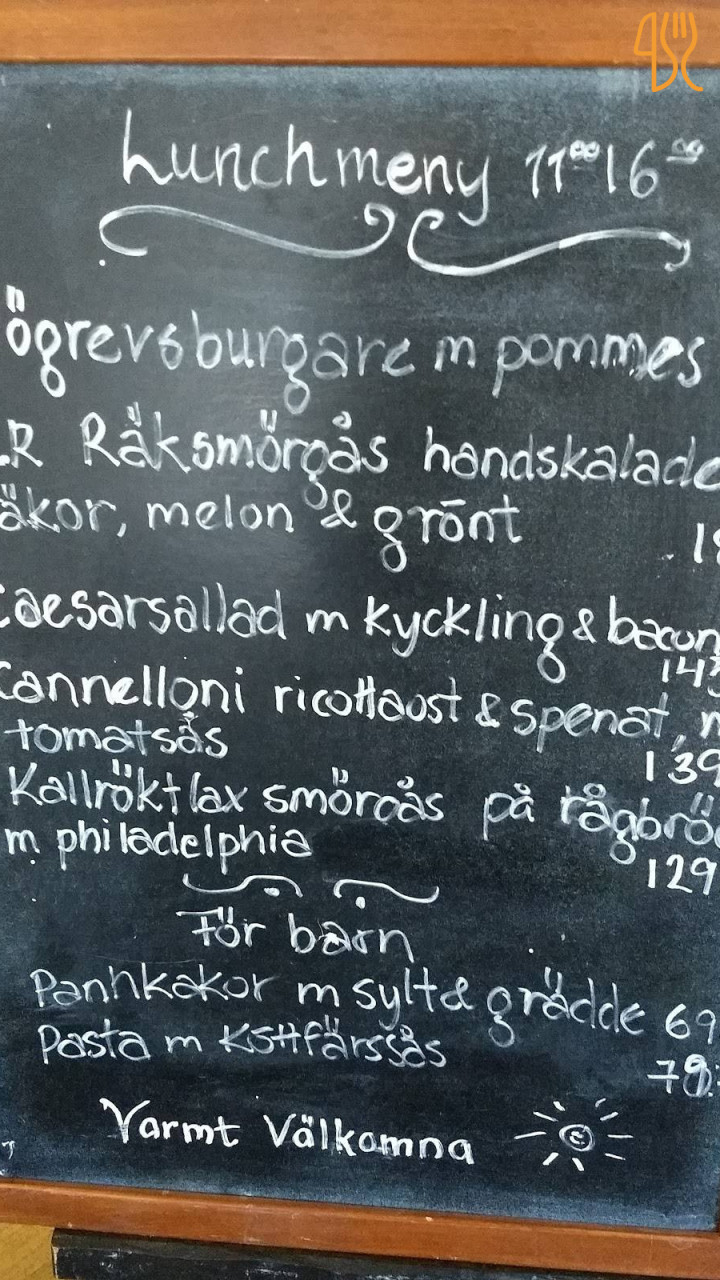 Lunchmeny 11⁰⁰ 16⁰⁰
ögrevsburgare m pommes
.R Räksmörgås handskalade
äkor, melon & grönt
Caesarsallad m kyckling & bacon
143
Cannelloni ricottaost & spenat, m
tomatsås
139
Kallrökt lax smörgås på rågbrö
m philadelphia
129
För barn
Pannkakor m sylt & grädde 69
Pasta m Köttfärssås
78:
Varmt Välkomna